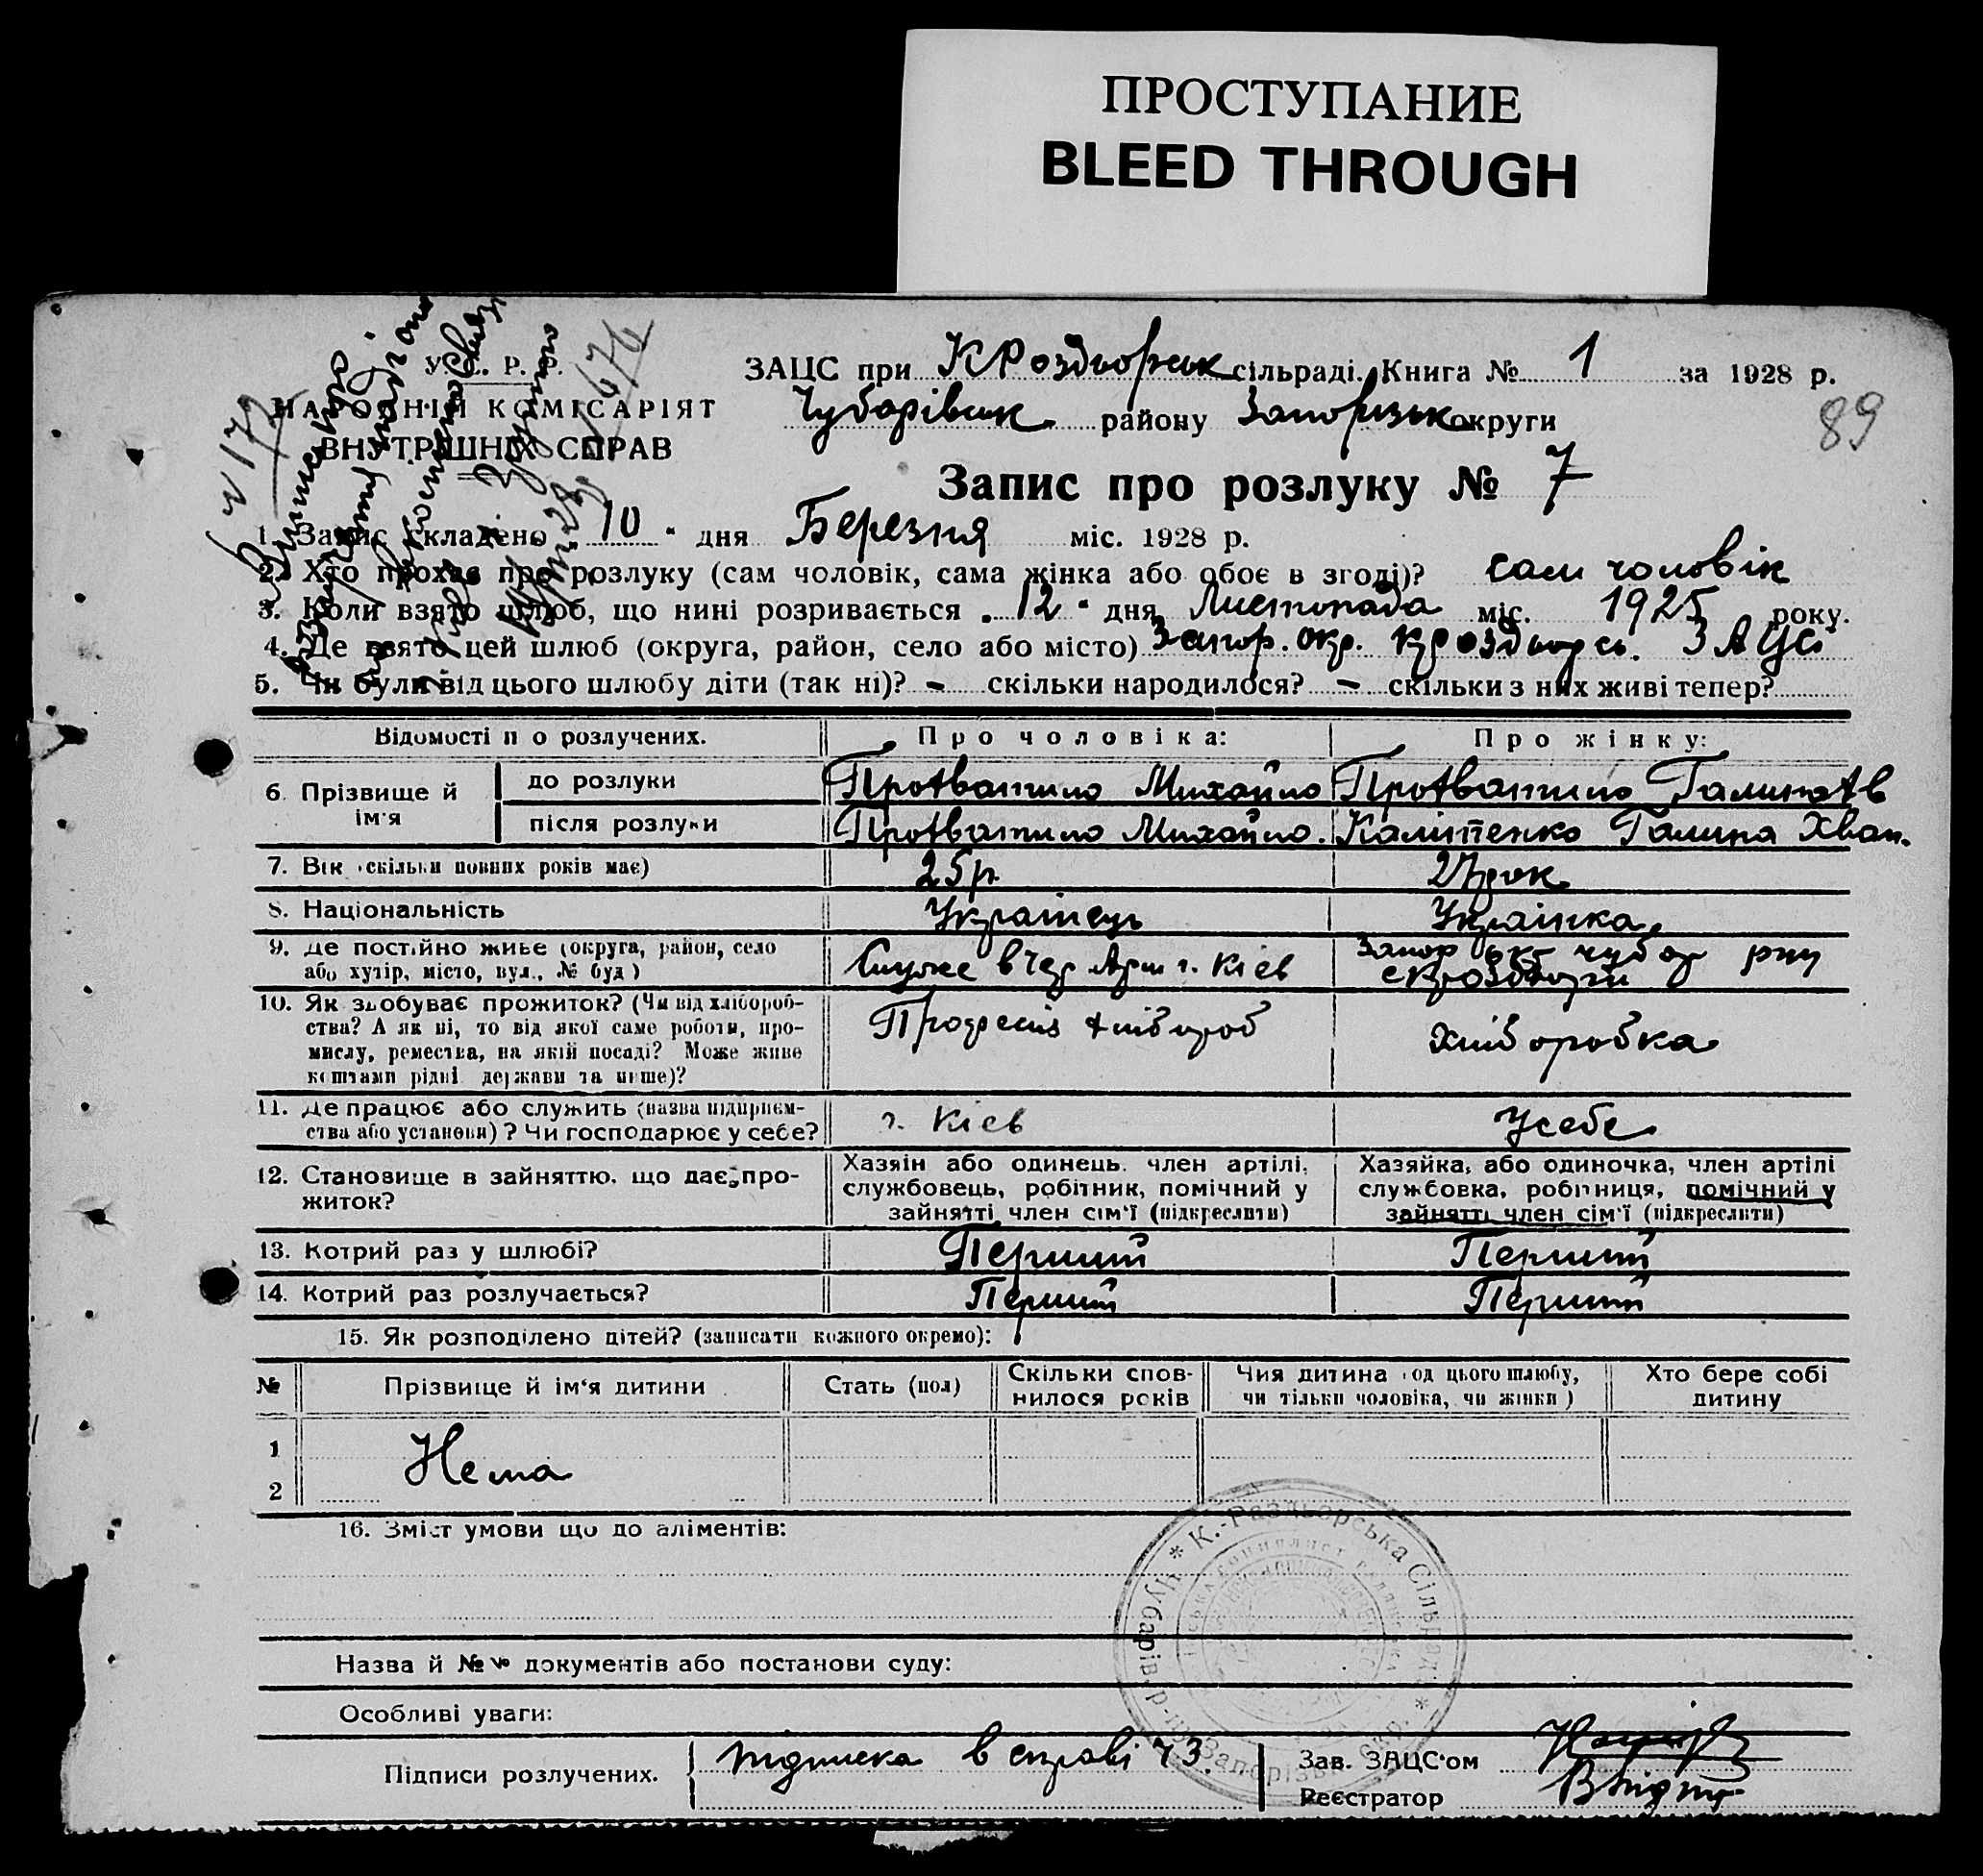 ПРОСТУПАНИЕ
BLEED THROUGH
У. Р. Р.
НАРОДНІЙ КОМІСАРІЯТ
ВНУТРІШНІХ СПРАВ
ЗАЦС при КРоздворськ сільраді. Книга № 1 за 1928 р.
Чубарівськ району Запоризьк округи
89
Запис про розлуку № 7
1. Запис складено 10 дня Березня міс. 1928 р.
2. Хто прохає про розлуку (сам чоловік, сама жінка або обоє в згоді)? сам чоловік
3. Коли взято шлюб, що нині розривається 12 дня Листопада міс. 1925 року.
4. Де взято цей шлюб (округа, район, село або місто) Запор. окр. ЗАЦС
5. Чи були від цього шлюбу діти (так ні)? – скільки народилося? – скільки з них живі тепер?
Відомості п о розлучених. Про чоловіка: Про жінку:
6. Прізвище й ім'я
до розлуки Протватило Михайло Протватило Галина
після розлуки Протватило Михайло. Галина Хван.
7. Вік скільки повних років має) 25р 27рок
8. Національність Украінець Украінка
9. Де постійно живе (округа, район, село або хутір, місто, вул., № буд) Служе в г. Кіев Запор окр чубар рну
10. Як здобуває прожиток? (Чи від хлібороб-
ства? А як ні, то від якої саме роботи, про-
мислу, ремества, на якій посаді? Може живе
коштами рідні держави та инше)?
Професія хлібороб Хліборобка
11. Де працює або служить (назва підприєм-
ства або установи)? Чи господарює у себе? г. Кіев Усебе
12. Становище в зайняттю, що дає про-
житок?
Хазяїн або одинець, член артілі,
службовець, робітник, помічний у
зайнятті член сім'ї (підкреслити)
Хазяйка, або одиночка, член артілі
службовка, робітниця, помічний у
зайнятті член сім'ї (підкреслити)
13. Котрий раз у шлюбі? Перший Перший
14. Котрий раз розлучається? Перший Перший
15. Як розподілено дітей? (записати кожного окремо):
№ Прізвище й ім'я дитини Стать (пол) Скільки спов-
нилося років Чия дитина од цього шлюбу,
чи тільки чоловіка, чи жінки) Хто бере собі
дитину
1 Нема
2
16. Зміст умови що до аліментів:
* К.-Раздьорська Сільрада * Чубарів. р-ну Запорізьк. окр.
Назва й №№ документів або постанови суду:
Особливі уваги:
Підписи розлучених. підписка в справі ч 3.
Зав. ЗАЦС'ом
Реєстратор